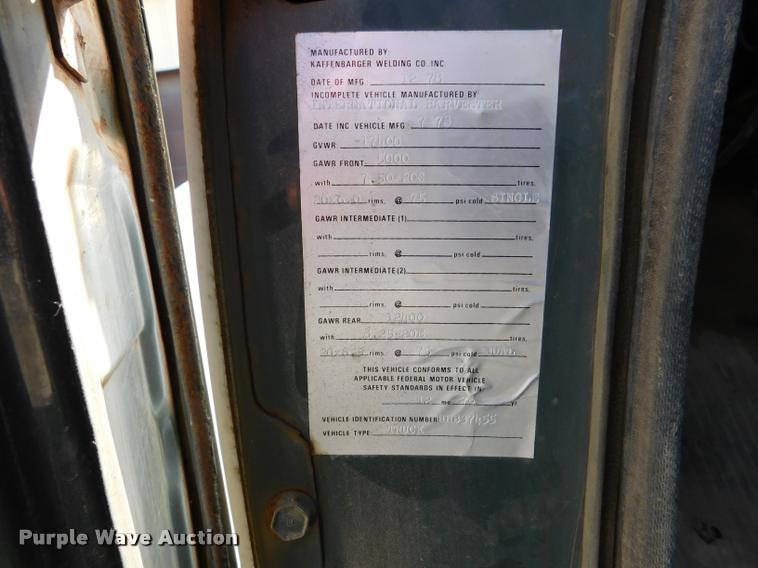 MANUFACTURED BY:
KAFFENBARGER WELDING CO. INC.
DATE OF MFG 12 78
INCOMPLETE VEHICLE MANUFACTURED BY
INTERNATIONAL HARVESTER
DATE INC VEHICLE MFG. 7 78
GVWR 17400
GAWR FRONT: 5000
with 7.50-20 tires.
rims. @ 75 psi cold SINGLE
GAWR INTERMEDIATE (1)
with tires.
rims. @ psi cold
GAWR INTERMEDIATE (2)
with tires.
rims. @ psi cold
GAWR REAR 12400
with 8.25-20 tires
rims @ psi cold DUAL
THIS VEHICLE CONFORMS TO ALL
APPLICABLE FEDERAL MOTOR VEHICLE
SAFETY STANDARDS IN EFFECT IN
12 mo 78 yr.
VEHICLE IDENTIFICATION NUMBER
VEHICLE TYPE TRUCK
Purple Wave Auction